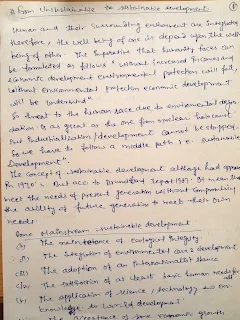 from Unsustainable to sustainable development
Human and their surrounding environment are integrated
therefore, the well being of one is depends upon the well
being of other. The imperative that humanity faces can
be formulated as follows "without increased incomes and
economic development environmental protection will fail,
without environmental protection economic development
will be undermined".
So threat to the human race due to environmental degra-
dation is as great as the one from nuclear holocaust
But industrialization/development cannot be stopped,
So we have to follow a middle path i.e. sustainable
Development".
The concept of sustainable development although had appeared
in 1970's. But acco to Brundtland report 1987. It means that
meet the needs of present generation without compromising
the ability of future generation to meet their own
needs.
Some Mainstream sustainable development
(i) The maintenance of ecological integrity
(ii) The integration of environmental care & development
(iii) The adoption of an internationalist stance
(iv) The satisfaction of at least basic human needs for all
(v) The application of science / technology
knowledge to world development
The acceptance of some economic growth